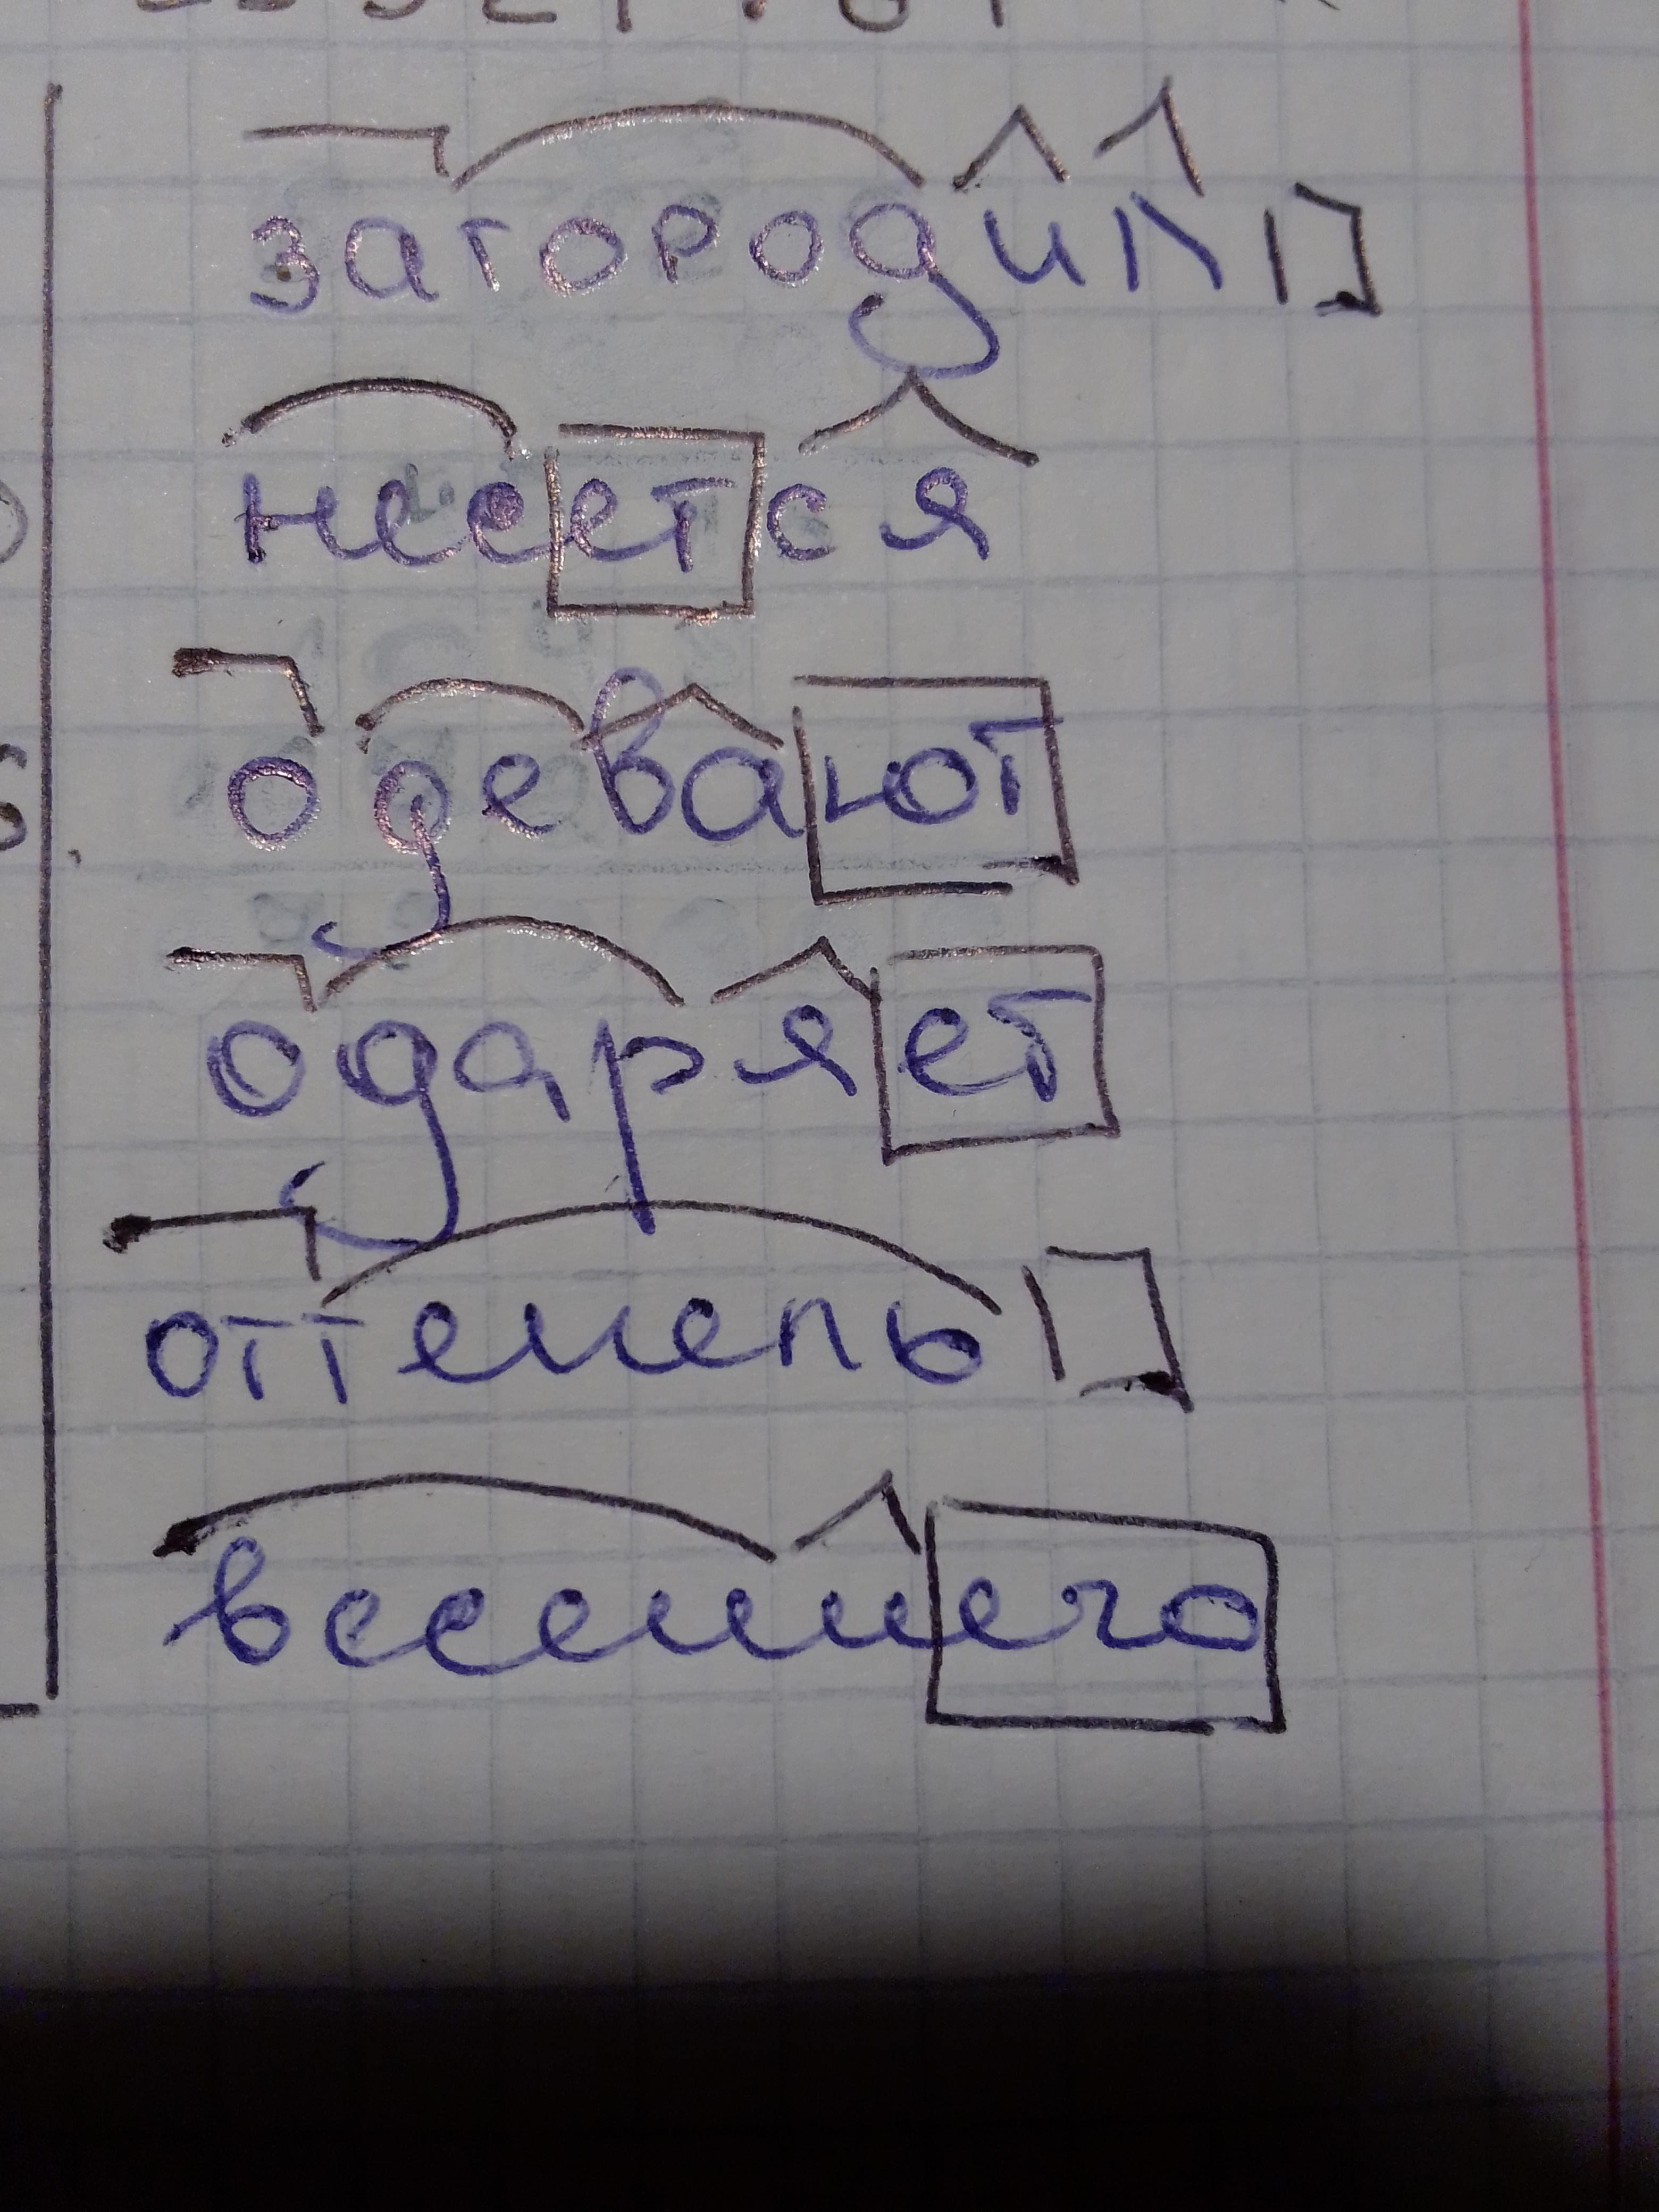 загородил
несется
одевают
одаряет
оттепепь
весеннего